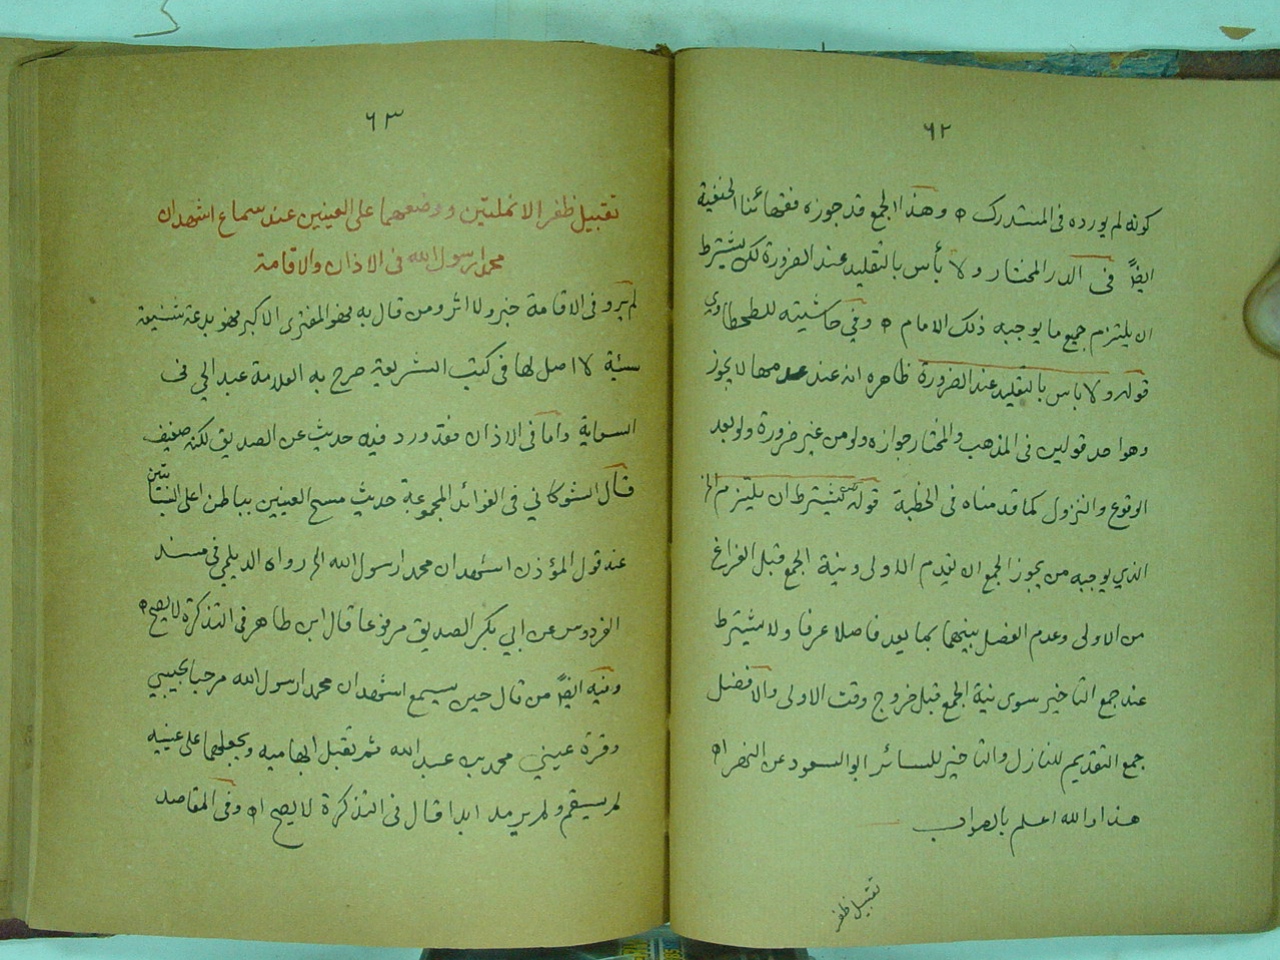 ٦٢
كونه لم يورده فى المستدرك اه وهذا الجمع قد جوزه فقهائنا الحنفية
ايضًا فى الدر المختار ولا بأس بالتقليد عند الضرورة لكن يشترط
ان يلتزم جميع ما يوجبه ذلك الامام اه وفي حاشيته للطحطاوي
قوله ولا باس بالتقليد عند الضرورة ظاهره انه عند عدمها لا يجوز
وهو احد قولين فى المذهب والمختار جوازه ولو من غير ضرورة ولو بعد
الوقوع والنزول كما قدمناه فى الخطبة قوله يشترط ان يلتزم الخ
الذي يوجبه من يجوز الجمع ان يقدم الاولى ونية الجمع قبل الفراغ
من الاولى وعدم الفصل بينهما بما يعد فاصلا عرفا ولا يشترط
عند جمع التاخير سوى نية الجمع قبل خروج وقت الاولى والافضل
جمع التقديم للنازل والتاخير للسائر ابو السعود عن النهر اه
هذا والله اعلم بالصواب
تقبيل ظفر
٦٣
تقبيل ظفر الانملتين ووضعهما على العينين عند سماع اشهد ان
محمدا رسول الله فى الاذان والاقامة
لم يرو فى الاقامة خبر ولا اثر ومن قال به فهو المفترى الاكبر فهو بدعة شنيعة
سيئة لا اصل لها فى كتب الشريعة صرح به العلامة عبد الحي فى
السعاية واما فى الاذان فقد ورد فيه حديث عن الصديق لكنه ضعيف
قال الشوكاني فى الفوائد المجموعة حديث مسح العينين بباطن اعلى السبابتين
عند قول المؤذن اشهد ان محمدا رسول الله الخ رواه الديلمي فى مسند
الفردوس عن ابي بكر الصديق مرفوعا قال ابن طاهر فى التذكرة لا يصح اه
وفيه ايضًا من قال حين يسمع اشهد ان محمدا رسول الله مرحبا بحبيبي
وقرة عيني محمد بن عبد الله ثم يقبل ابهاميه ويجعلهما على عينيه
لم يسقم ولم يرمد ابدا قال فى التذكرة لا يصح اه وفى المقاصد